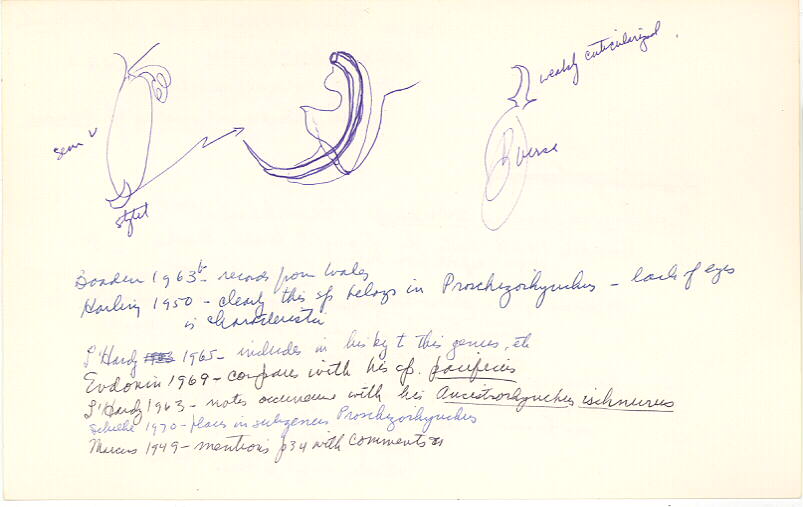 weakly cuticularized
sem v
b verse
stylet
Boaden 1963b - records from Wales
Karling 1950 - clearly this sp belongs in Proschizorhynchus - lack of eyes
is characteristic
L'Hardy 1965 - includes in his key to this genus, etc
Evdonin 1969 - compares with his sp. pacificus
L'Hardy 1963 - notes occurrence with his Ancistrorhynchus ischnurus
Schilke 1970 - places in subgenus Proschizorhynchus
Marcus 1949 - mentions p34 with comments